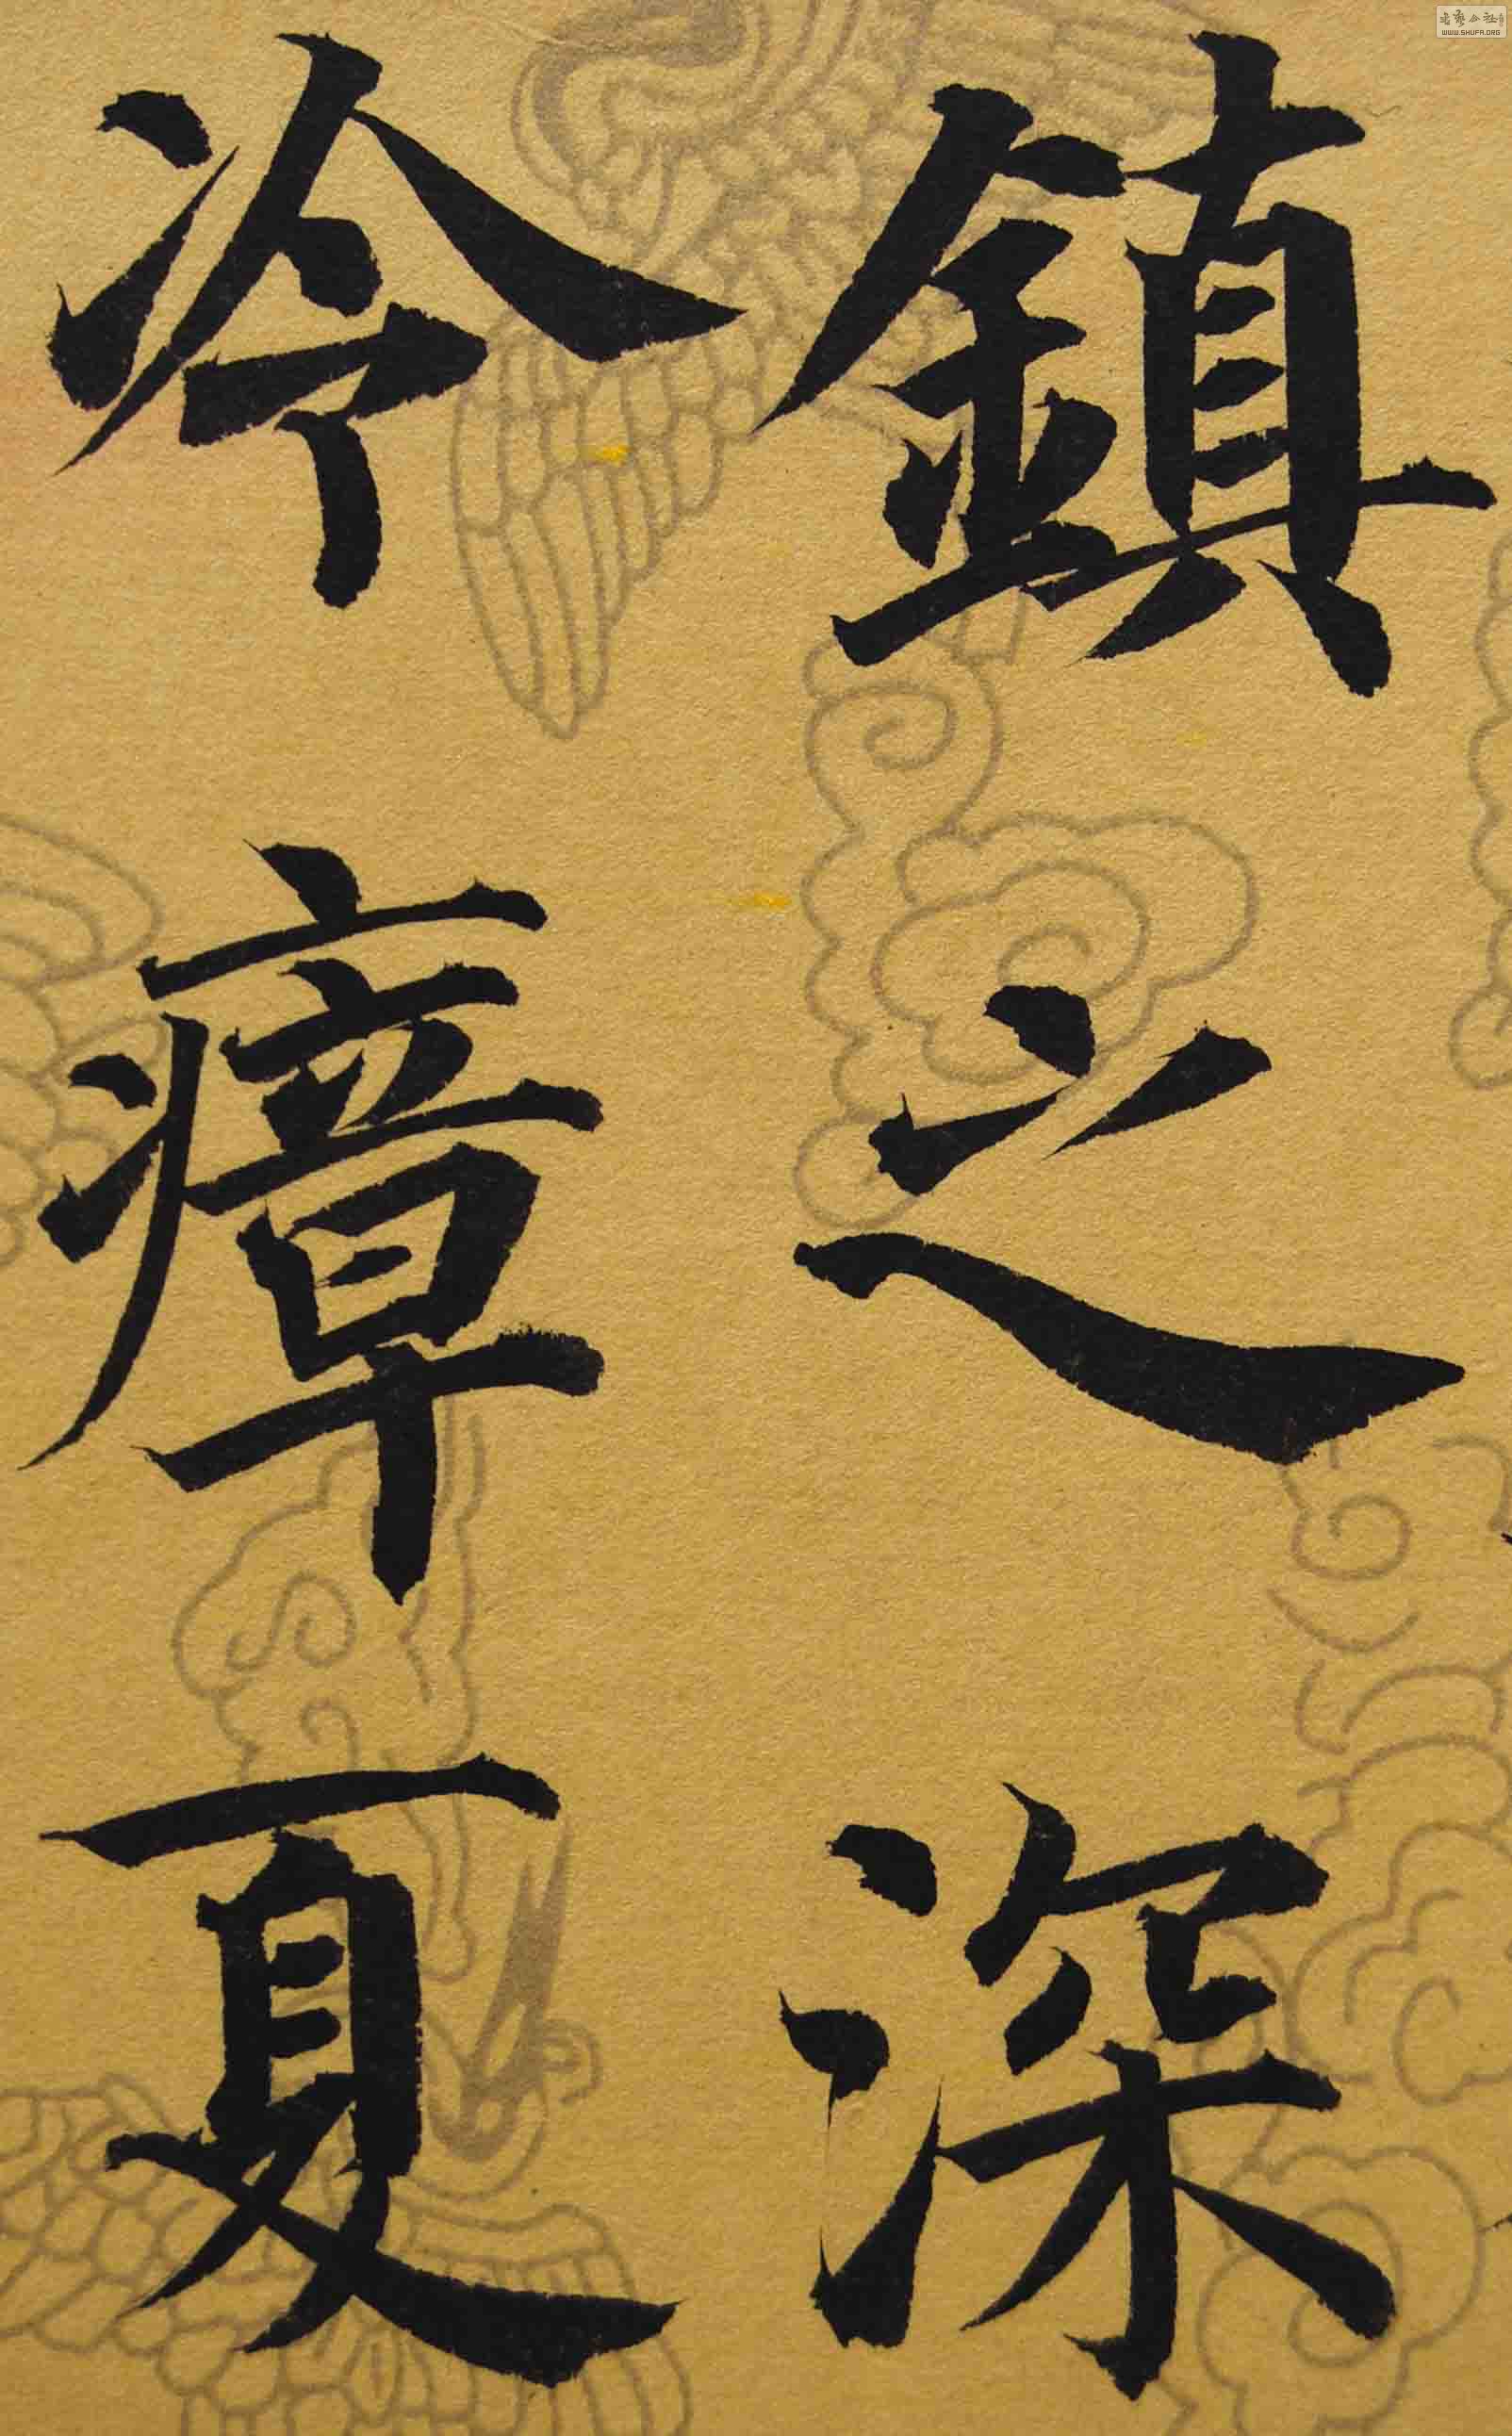 鎮之深
冷瘴夏
WWW.SHUFA.ORG